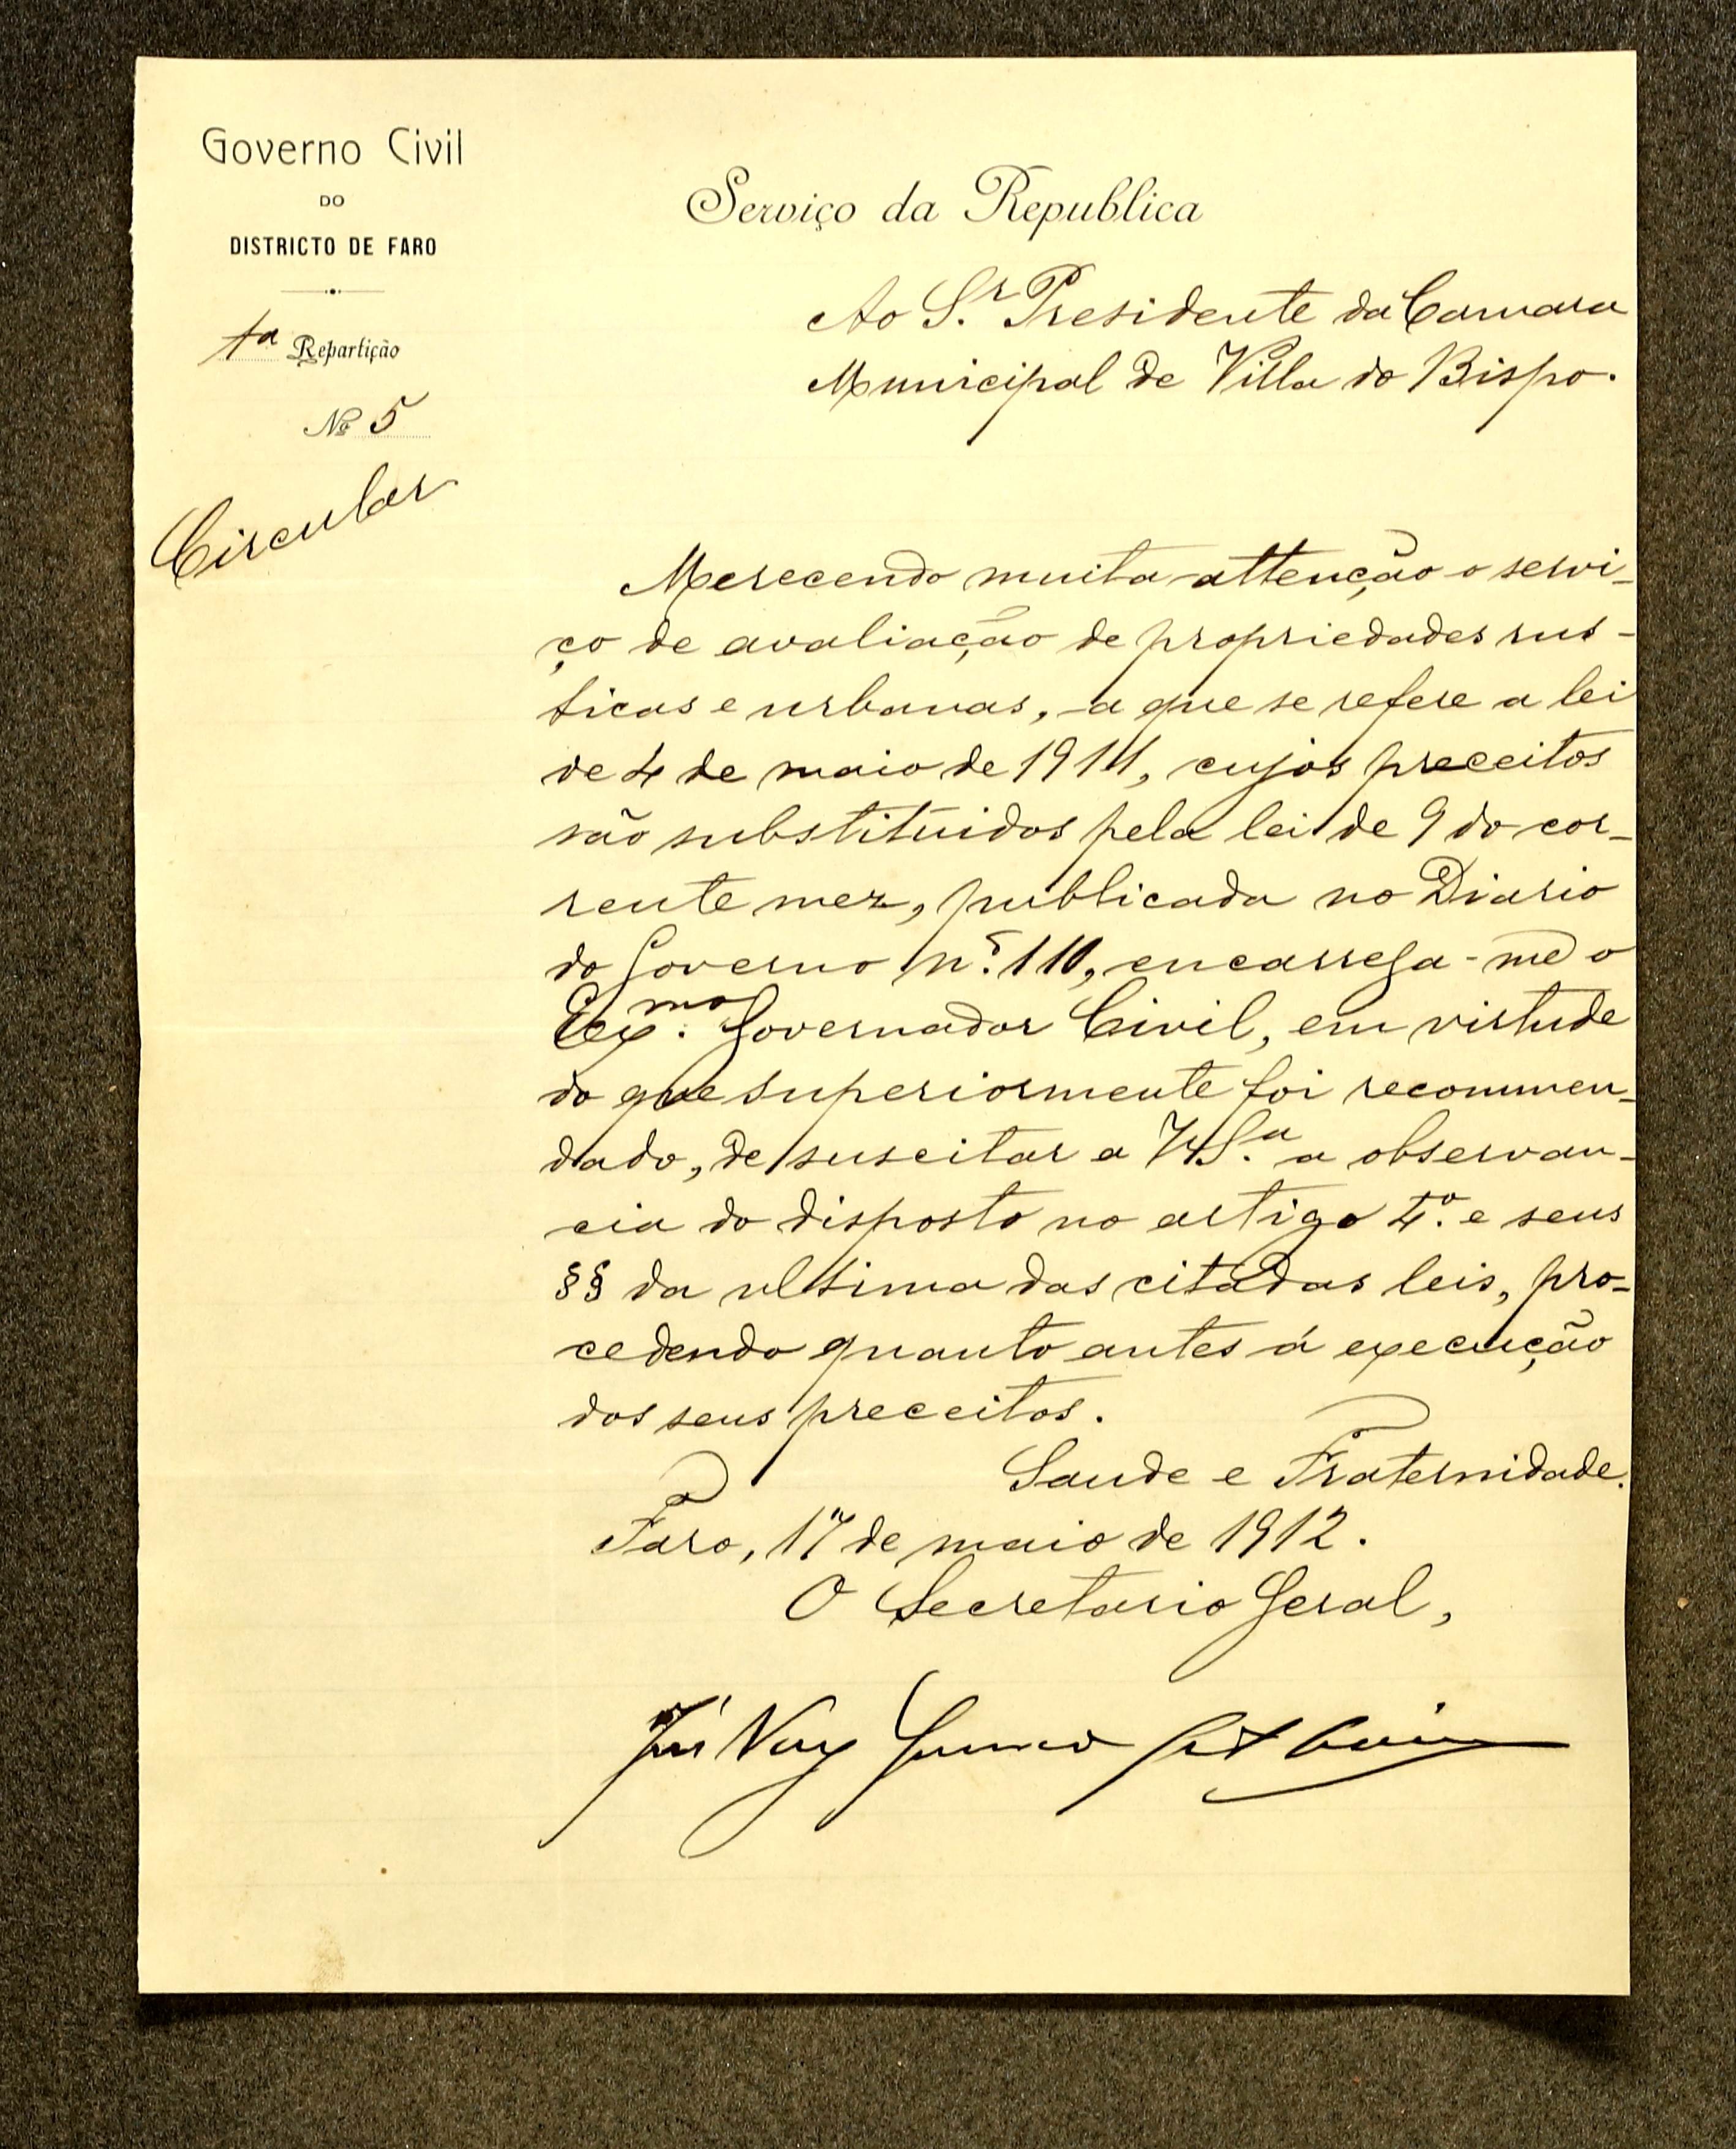 Governo Civil
DO
DISTRICTO DE FARO
1ª Repartição
Nº 5
Circular
Serviço da Republica
Ao S.r Presidente da Camara
Municipal de Villa do Bispo.
Merecendo muita attenção o servi-
ço de avaliação de propriedades rus-
ticas e urbanas, a que se refere a lei
de 4 de maio de 1911, cujos preceitos
são substituidos pela lei de 9 do cor-
rente mez, publicada no Diario
do Governo n.º 110, encarrega-me o
Ex.mo Governador Civil, em virtude
do que superiormente foi recommen-
dado, de suscitar a V. S.ª a observan-
cia do disposto no artigo 4.º e seus
§§ da ultima das citadas leis, pro-
cedendo quanto antes á execução
dos seus preceitos.
Saude e Fraternidade.
Faro, 17 de maio de 1912.
O Secretario Geral,
José Vaz